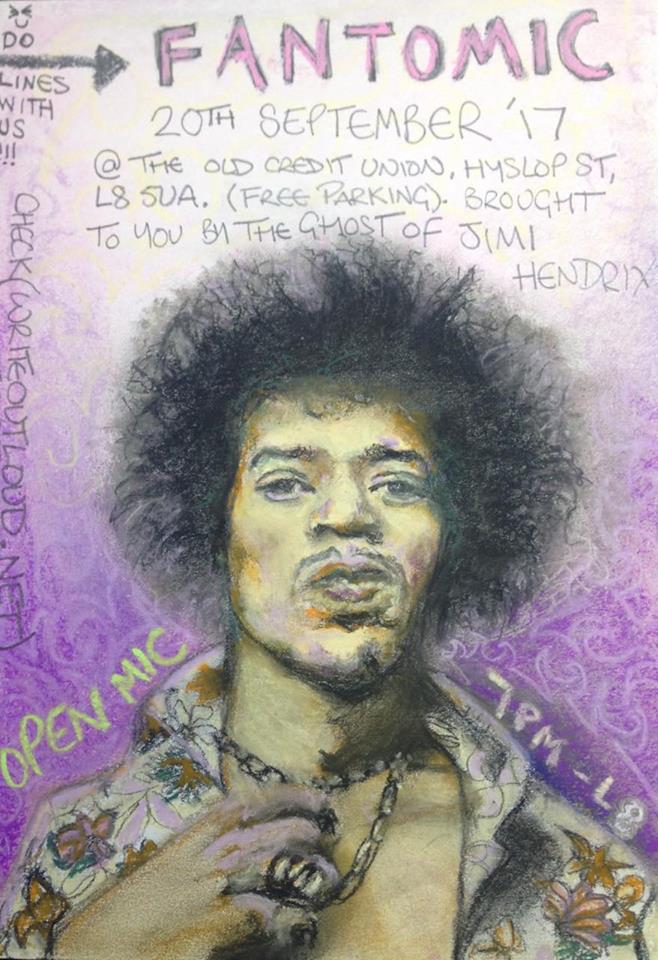 DO
LINES
WITH
US
!!!
FANTOMIC
20TH SEPTEMBER '17
@ THE OLD CREDIT UNION, HYSLOP ST,
L8 5UA. (FREE PARKING). BROUGHT
TO YOU BY THE GHOST OF JIMI
HENDRIX
CHECK (WRITEOUTLOUD.NET)
OPEN MIC
7PM - L8